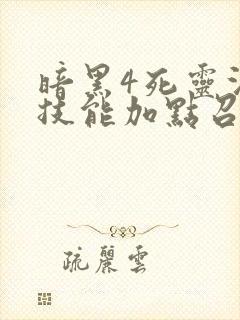 暗黑4死靈
技能加點召
疏麗雲